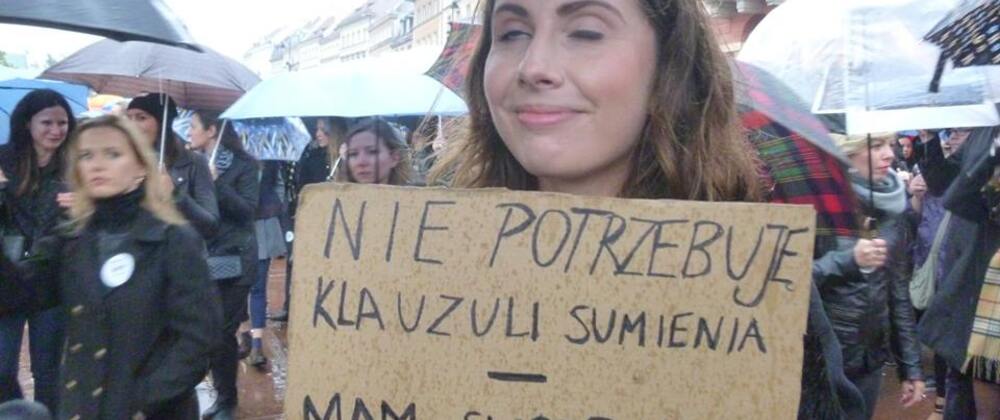 NIE POTRZEBUJĘ
KLAUZULI SUMIENIA
—
MAM